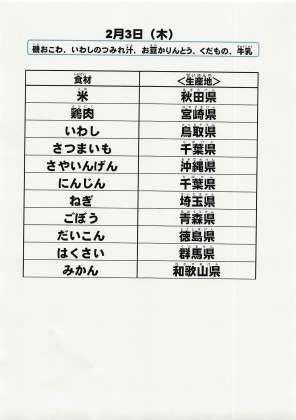 2月3日（木）
磯おこわ、いわしのつみれ汁、お豆かりんとう、くだもの、牛乳
食材 ＜生産地＞
米 秋田県
鶏肉 宮崎県
いわし 鳥取県
さつまいも 千葉県
さやいんげん 沖縄県
にんじん 千葉県
ねぎ 埼玉県
ごぼう 青森県
だいこん 徳島県
はくさい 群馬県
みかん 和歌山県